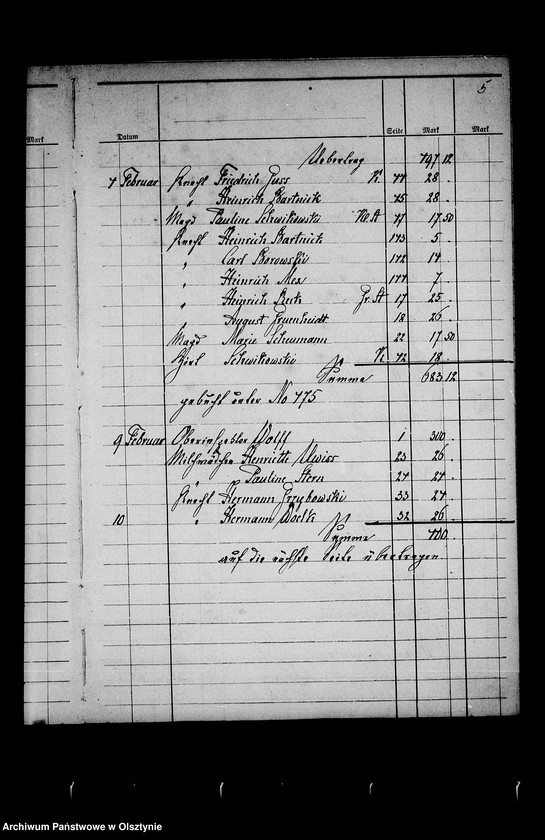 5
Mark
Datum Seite Mark Mark
Uebertrag 497.12
7 Februar Knecht Friedrich K. 44 28 .
" Heinrich Bartnick 45 28 .
Magd Pauline Schwikowski 47 17.50
Knecht Heinrich Bartnick 173 5 .
" Carl Borowski 172 14 .
" Heinrich Mex 177 7 .
" Heinrich Gr. St 17 25 .
August Gruenheidt 18 26 .
Magd Marie Schumann 22 17.50
Hirt Schwikowski K. 42 18 .
Summe 683.12
gebucht unter No 475
9 Februar Oberinspector Wolff 1 300 .
Milchmädchen Henriette 23 26 .
" Pauline Stern 24 24 .
Knecht Hermann Grzybowski 33 24 .
10 " Hermann Woelk 32 26 .
Summe 400 .
auf die nächste Seite übertragen
Archiwum Państwowe w Olsztynie